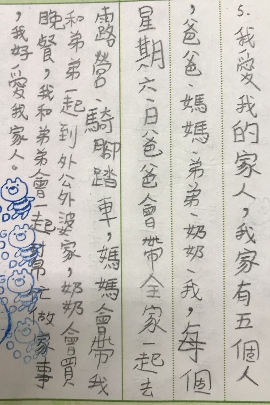 5.我愛我的家人,我家有五個人
,爸爸、媽媽、弟弟、奶奶、我,每個
星期六、日爸爸會帶全家一起去
露營、騎腳踏車,媽媽會帶我
和弟弟一起到外公外婆家,奶奶會買
晚餐,我和弟弟會一起幫忙做家事
,我好愛我家人